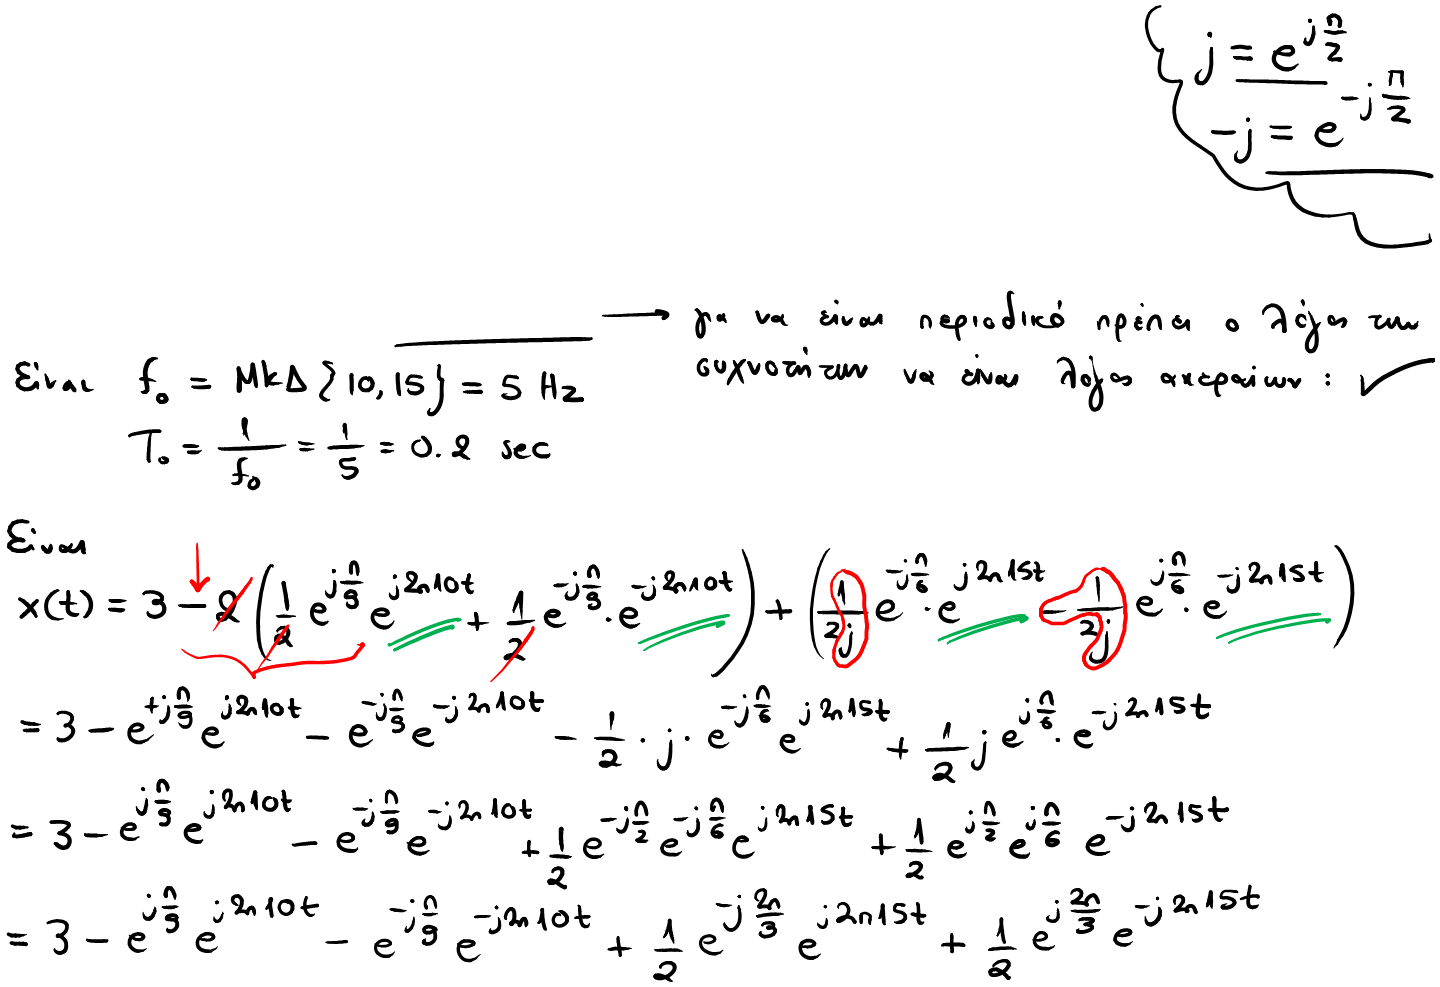 j = e^{jπ/2}
-j = e^{-jπ/2}
→ για να είναι περιοδικό πρέπει ο λόγος των
συχνοτήτων να είναι λόγος ακεραίων : ✓
Είναι f₀ = ΜΚΔ {10, 15} = 5 Hz
T₀ = 1/f₀ = 1/5 = 0.2 sec
Είναι
x(t) = 3 - 2 (1/2 e^{jπ/9} e^{j2π10t} + 1/2 e^{-jπ/9} · e^{-j2π10t}) + (1/2j e^{-jπ/6} · e^{j2π15t} - 1/2j e^{jπ/6} · e^{-j2π15t})
= 3 - e^{+jπ/9} e^{j2π10t} - e^{-jπ/9} e^{-j2π10t} - 1/2 · j · e^{-jπ/6} e^{j2π15t} + 1/2 j e^{jπ/6} · e^{-j2π15t}
= 3 - e^{jπ/9} e^{j2π10t} - e^{-jπ/9} e^{-j2π10t} + 1/2 e^{-jπ/2} e^{-jπ/6} e^{j2π15t} + 1/2 e^{jπ/2} e^{jπ/6} e^{-j2π15t}
= 3 - e^{jπ/9} e^{j2π10t} - e^{-jπ/9} e^{-j2π10t} + 1/2 e^{-j2π/3} e^{j2π15t} + 1/2 e^{j2π/3} e^{-j2π15t}